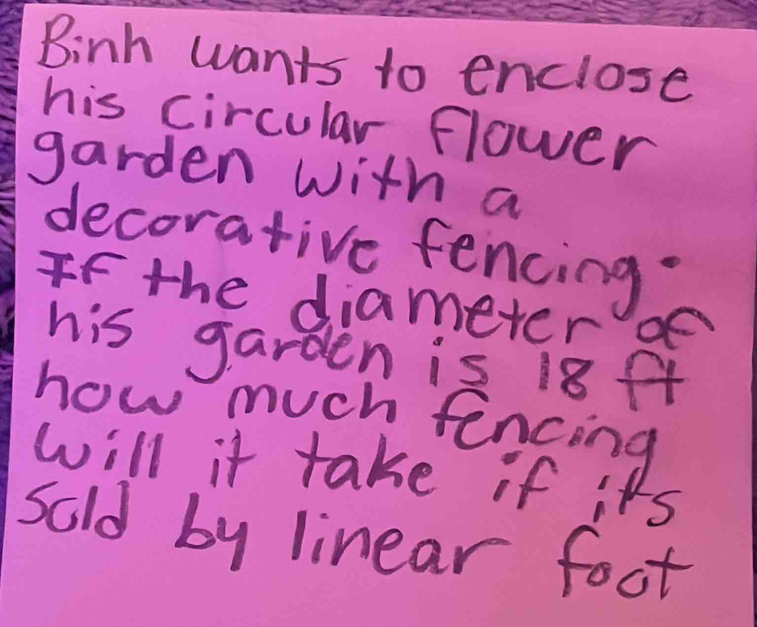 Binh wants to enclose
his circular flower
garden with a
decorative fencing.
If the diameter of
his garden is 18 ft
how much fencing
will it take if it's
sold by linear foot